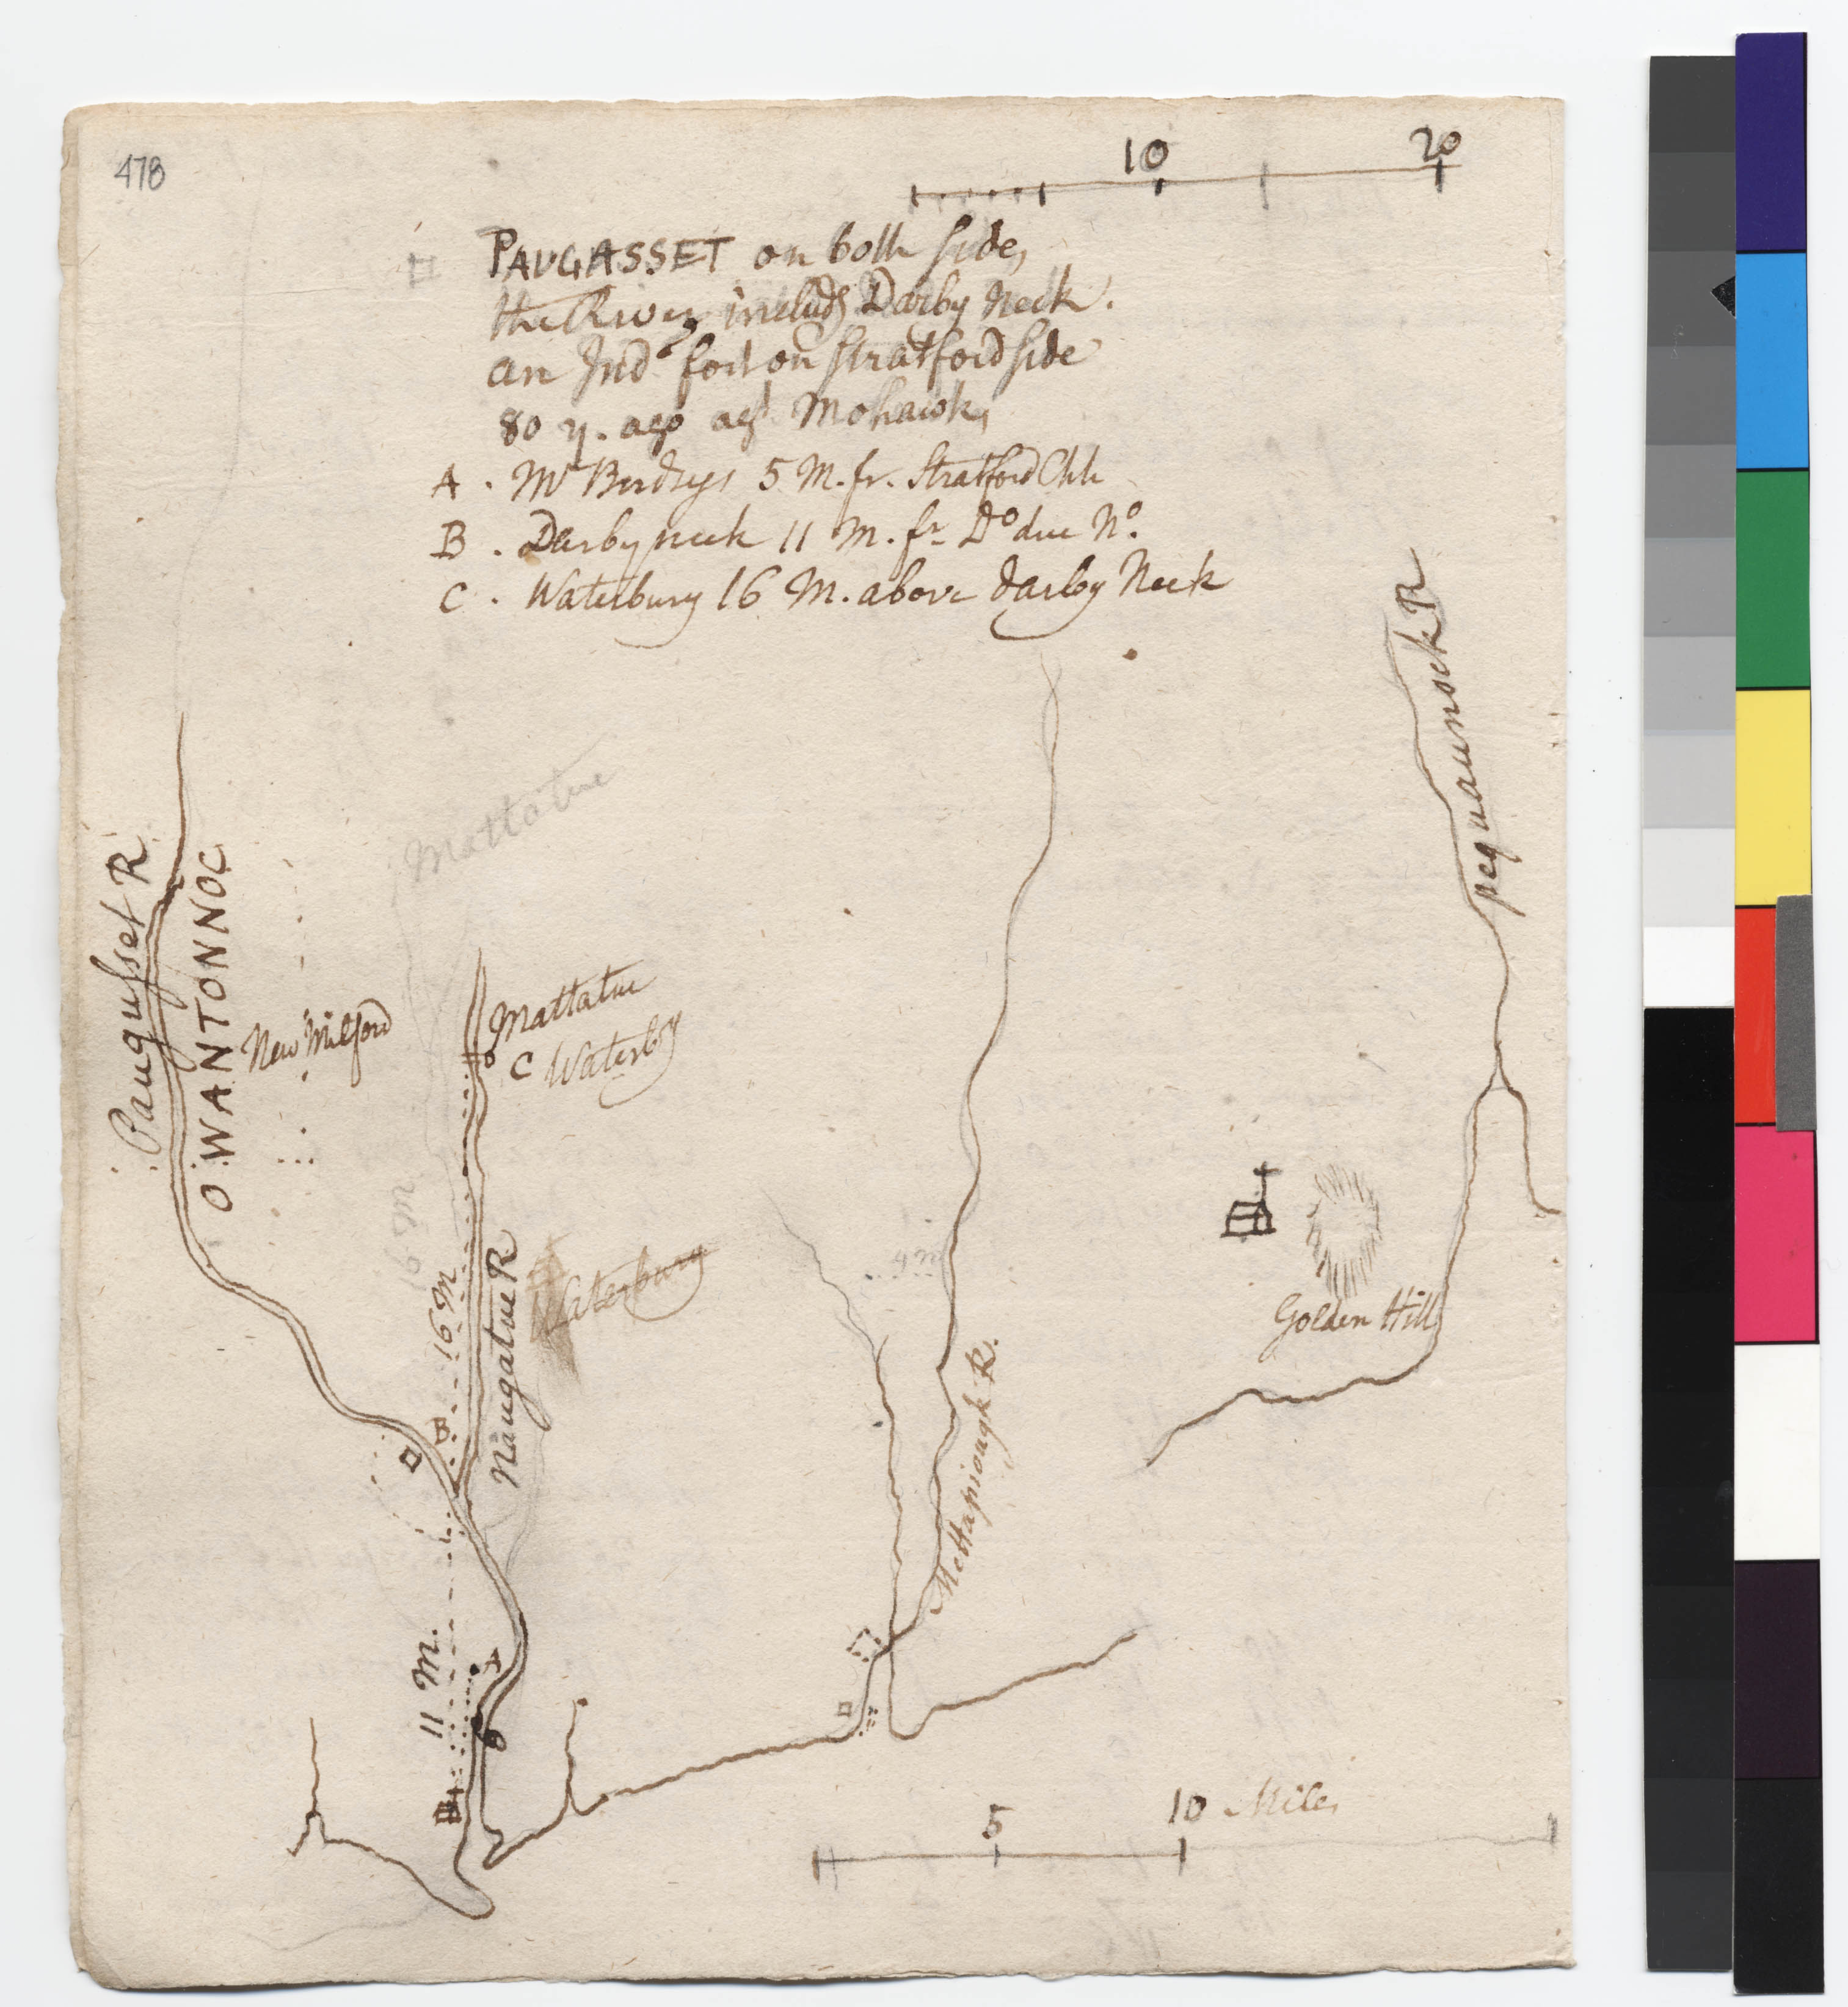 478
10 20
PAUGASSET on both side,
the River includs Darby Neck.
an Indⁿ fort on Stratford side
80 y. ago agt Mohawks
A . Mr Birdseys 5 M. fr. Stratford Chh
B . Darby neck 11 M. fr Do due No.
C . Waterbury 16 M. above darby Neck
pequaunnock R
Mattatuc
Paugusset R
OWANTONNOC
New Milford
Mattatuc
C Waterby
16 M
16 M
Naugatuc R
Waterbury
4 m
Golden Hill
B
Mettapiougk R.
11 M.
A
5 10 Miles